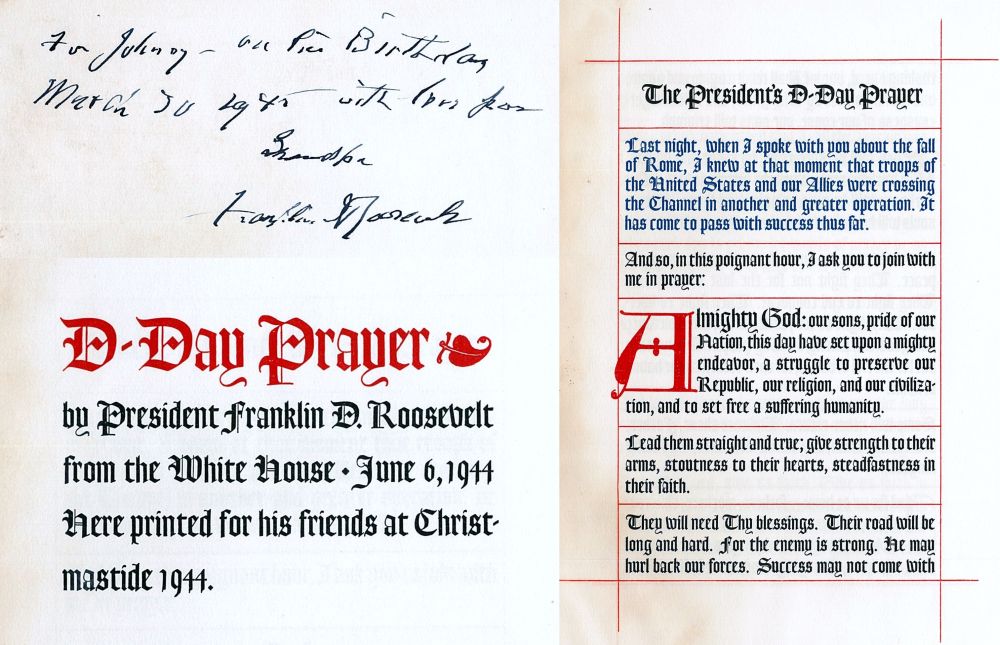 For Johnny – on his Birthday
March 30 1945 with love from
Grandpa
Franklin D Roosevelt
D-Day Prayer
by President Franklin D. Roosevelt
from the White House · June 6, 1944
Here printed for his friends at Christ-
mastide 1944.
The President's D-Day Prayer
Last night, when I spoke with you about the fall
of Rome, I knew at that moment that troops of
the United States and our Allies were crossing
the Channel in another and greater operation. It
has come to pass with success thus far.
And so, in this poignant hour, I ask you to join with
me in prayer:
Almighty God: our sons, pride of our
Nation, this day have set upon a mighty
endeavor, a struggle to preserve our
Republic, our religion, and our civiliza-
tion, and to set free a suffering humanity.
Lead them straight and true; give strength to their
arms, stoutness to their hearts, steadfastness in
their faith.
They will need Thy blessings. Their road will be
long and hard. For the enemy is strong. He may
hurl back our forces. Success may not come with